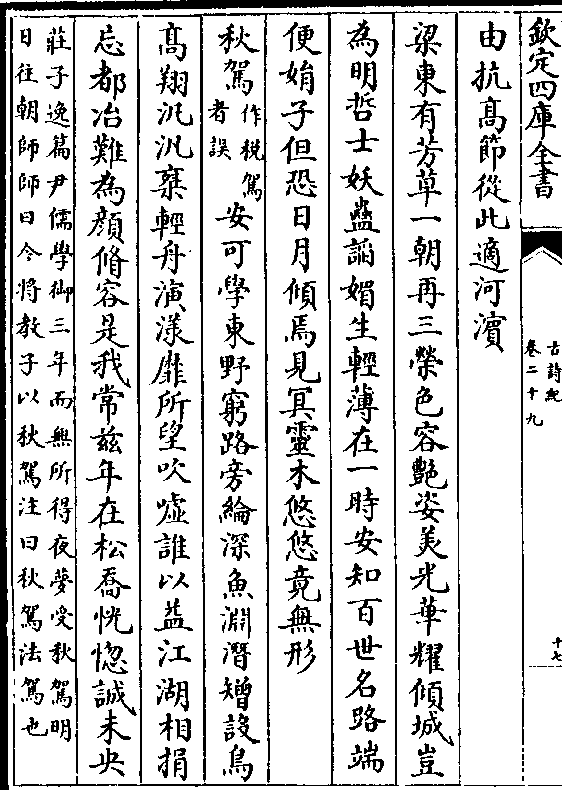 欽定四庫全書
古詩紀
卷二十九
十七
由抗髙節從此適河濵
梁東有芳草一朝再三榮色容艷姿美光華耀傾城豈
為明哲士妖蠱謟媚生輕薄在一時安知百世名路端
便娟子但恐日月傾焉見冥靈木悠悠竟無形
秋駕作稅駕者誤安可學東野窮路旁綸深魚淵潛矰設鳥
髙翔汎汎乗輕舟演漾靡所望吹嘘誰以益江湖相捐
忘都冶難為顔脩容是我常兹年在松喬恍惚誠未央
莊子逸篇尹儒學御三年而無所得夜夢受秋駕明
日往朝師師曰今將教子以秋駕注曰秋駕法駕也